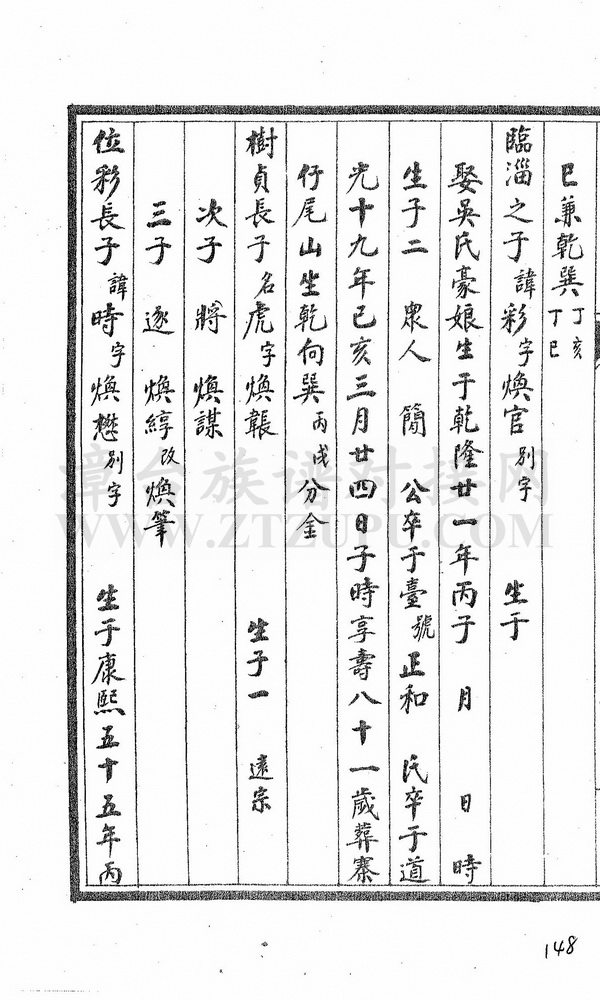 巳兼乾巽丁亥丁巳
臨淄之子諱彩字煥官別字 生于
娶吳氏豪娘生于乾隆廿一年丙子 月 日 時
生子二 眾人 簡 公卒于臺號正和 氏卒于道
光十九年己亥三月廿四日子時享壽八十一歲葬寨
仔尾山坐乾向巽丙戌分金
樹貞長子名虎字煥韔 生子一 遠宗
次子 將 煥謀
三子 逐 煥綧改煥筆
位彩長子諱時字煥懋別字 生于康熙五十五年丙
148
漳台族谱对接网
WWW.ZTZUPU.COM